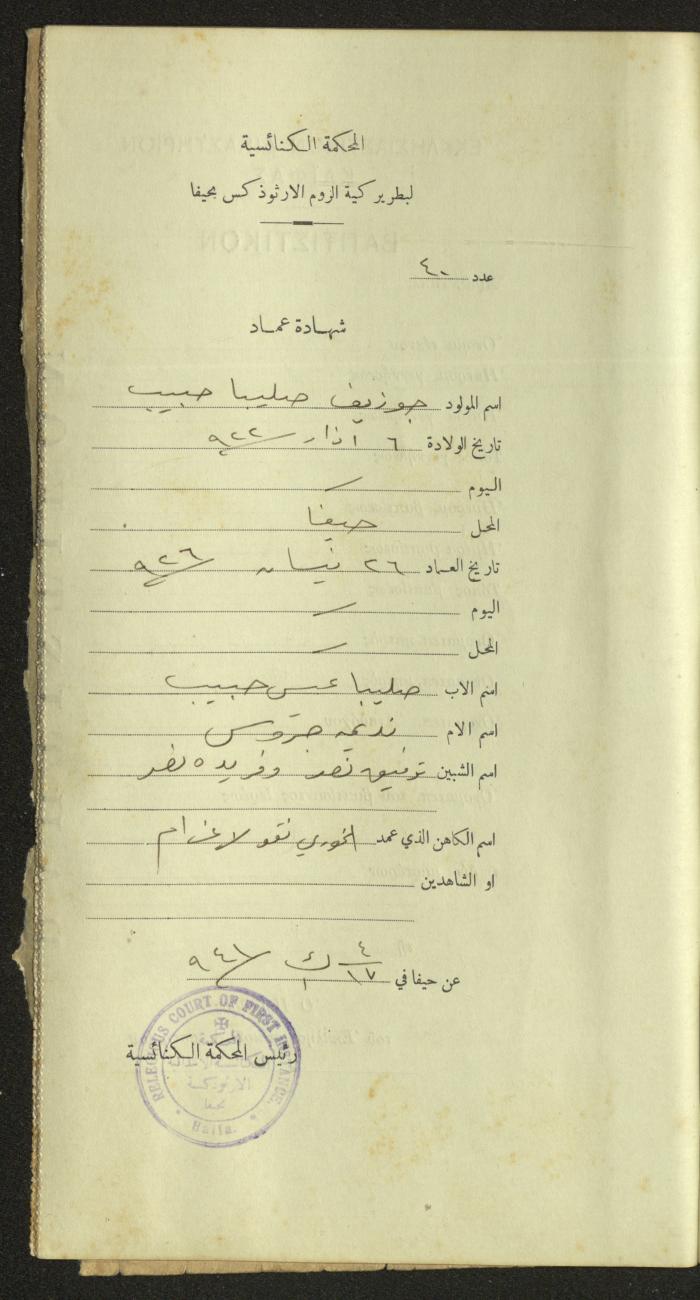 المحكمة الكنائسية
لبطريركية الروم الارثوذكس بحيفا
عدد ٤٠
شهادة عماد
اسم المولود جوزيف صليبا حبيب
تاريخ الولادة ٦ آذار ٩٢٢
اليوم
المحل حيفا
تاريخ العماد ٢٦ نيسان ٩٢٦
اليوم
المحل
اسم الاب صليبا عيسى حبيب
اسم الام نديمه
اسم الشبين توفيق نصر وفريده نصر
اسم الكاهن الذي عمد الخوري نقولا
او الشاهدين
عن حيفا في ٤/١٧ ك١ ٩٤١
رئيس المحكمة الكنائسية
RELEGIOUS COURT OF FIRST INSTANCE.
الارثوذكسية
بحيفا
Haifa.